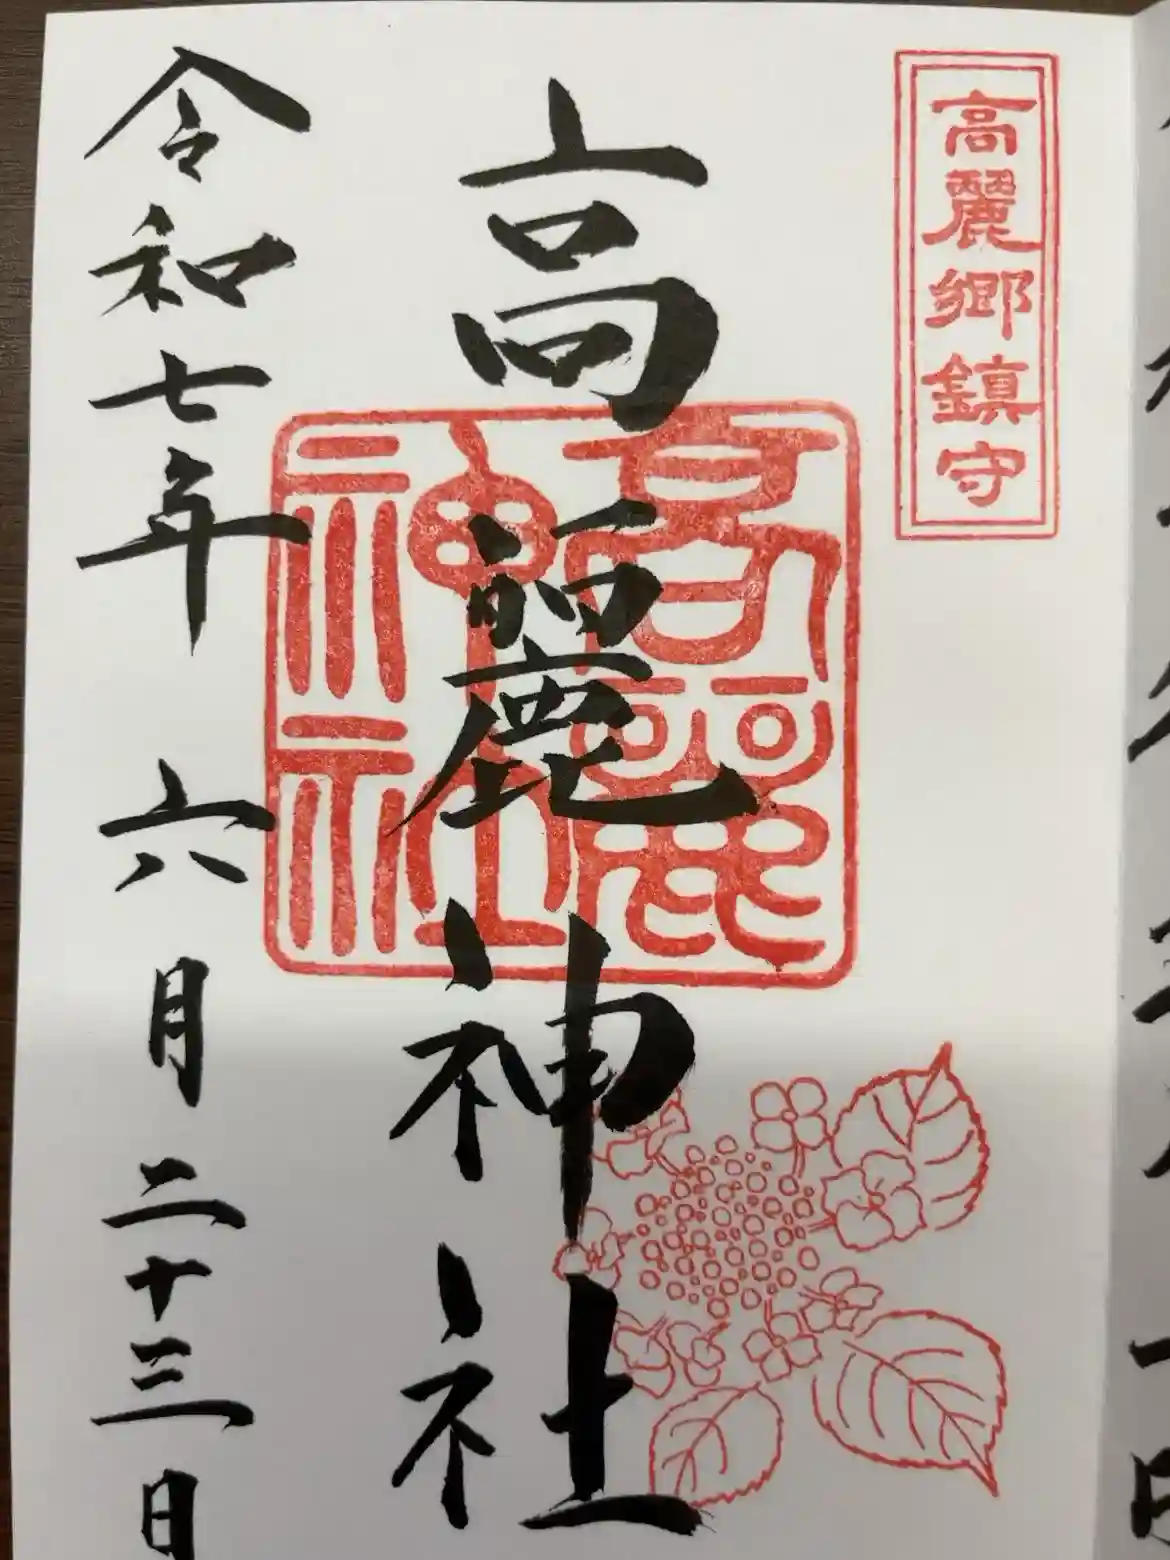 高麗郷鎮守
高麗神社
高麗神社
令和七年 六月二十三日